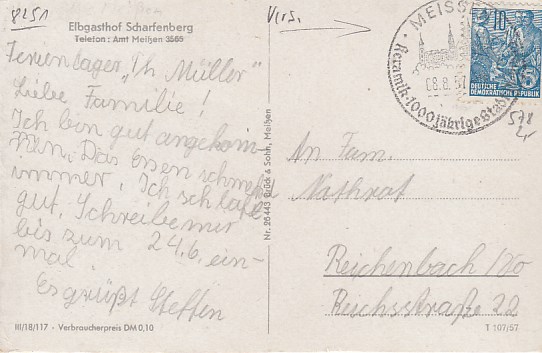 8251
Elbgasthof Scharfenberg
Telefon: Amt Meißen 3565
Ferienlager "Th. Müller"
Liebe Familie!
Ich bin gut angekom-
men. Das Essen schmeckt
immer. Ich schlafe
gut. Schreibe mir
bis zum 24.6. ein-
mal.
Es grüßt Steffen
III/18/117 - Verbraucherpreis DM 0,10
Nr. 26443 Brück & Sohn, Meißen
MEISSEN
08.8.57
Keramik-1000jährige Stadt
10
DEUTSCHE
DEMOKRATISCHE REPUBLIK
578
An Fam.
Nathrat
Reichenbach
Reichsstraße 22
T 107/57